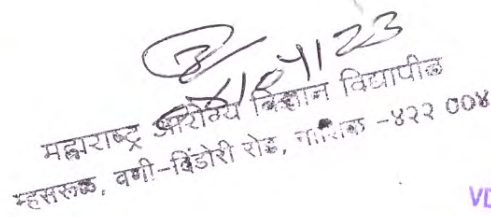 महाराष्ट्र आरोग्य विज्ञान विद्यापीठ
म्हसरूळ, वणी-दिंडोरी रोड, नाशिक -४२२ ००४
VD